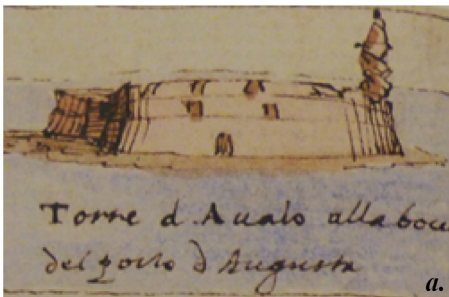 Torre d Aualo alla bocc
del porto d Augusta
a.